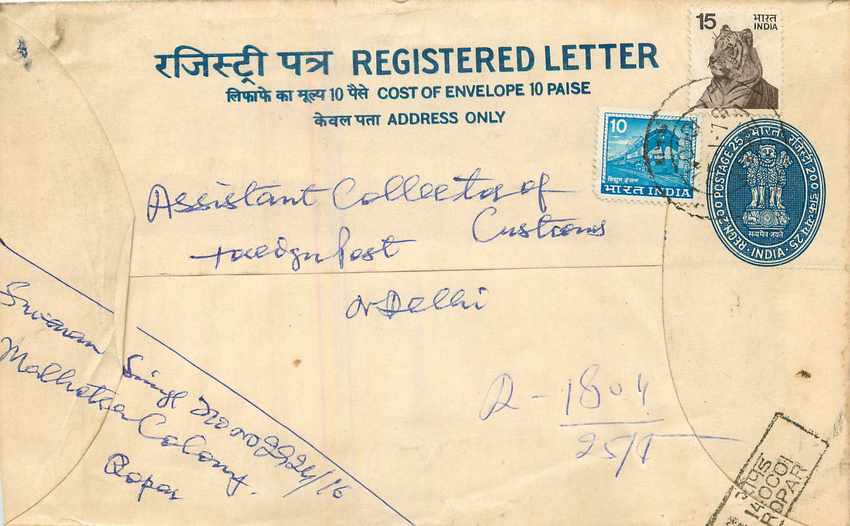 रजिस्ट्री पत्र REGISTERED LETTER
लिफाफे का मूल्य 10 पैसे COST OF ENVELOPE 10 PAISE
केवल पता ADDRESS ONLY
15 भारत
INDIA
10
विद्युत इंजन
भारत INDIA
REGN. 200 POSTAGE 25 भारत रजिस्ट्री 200 डाक-व्यय 25
सत्यमेव जयते
INDIA
Assistant Collector of
Customs
Foreign Post
N Delhi
Singh
Malhotra Colony.
Ropar
R-1804
25/1
140001
ROPAR